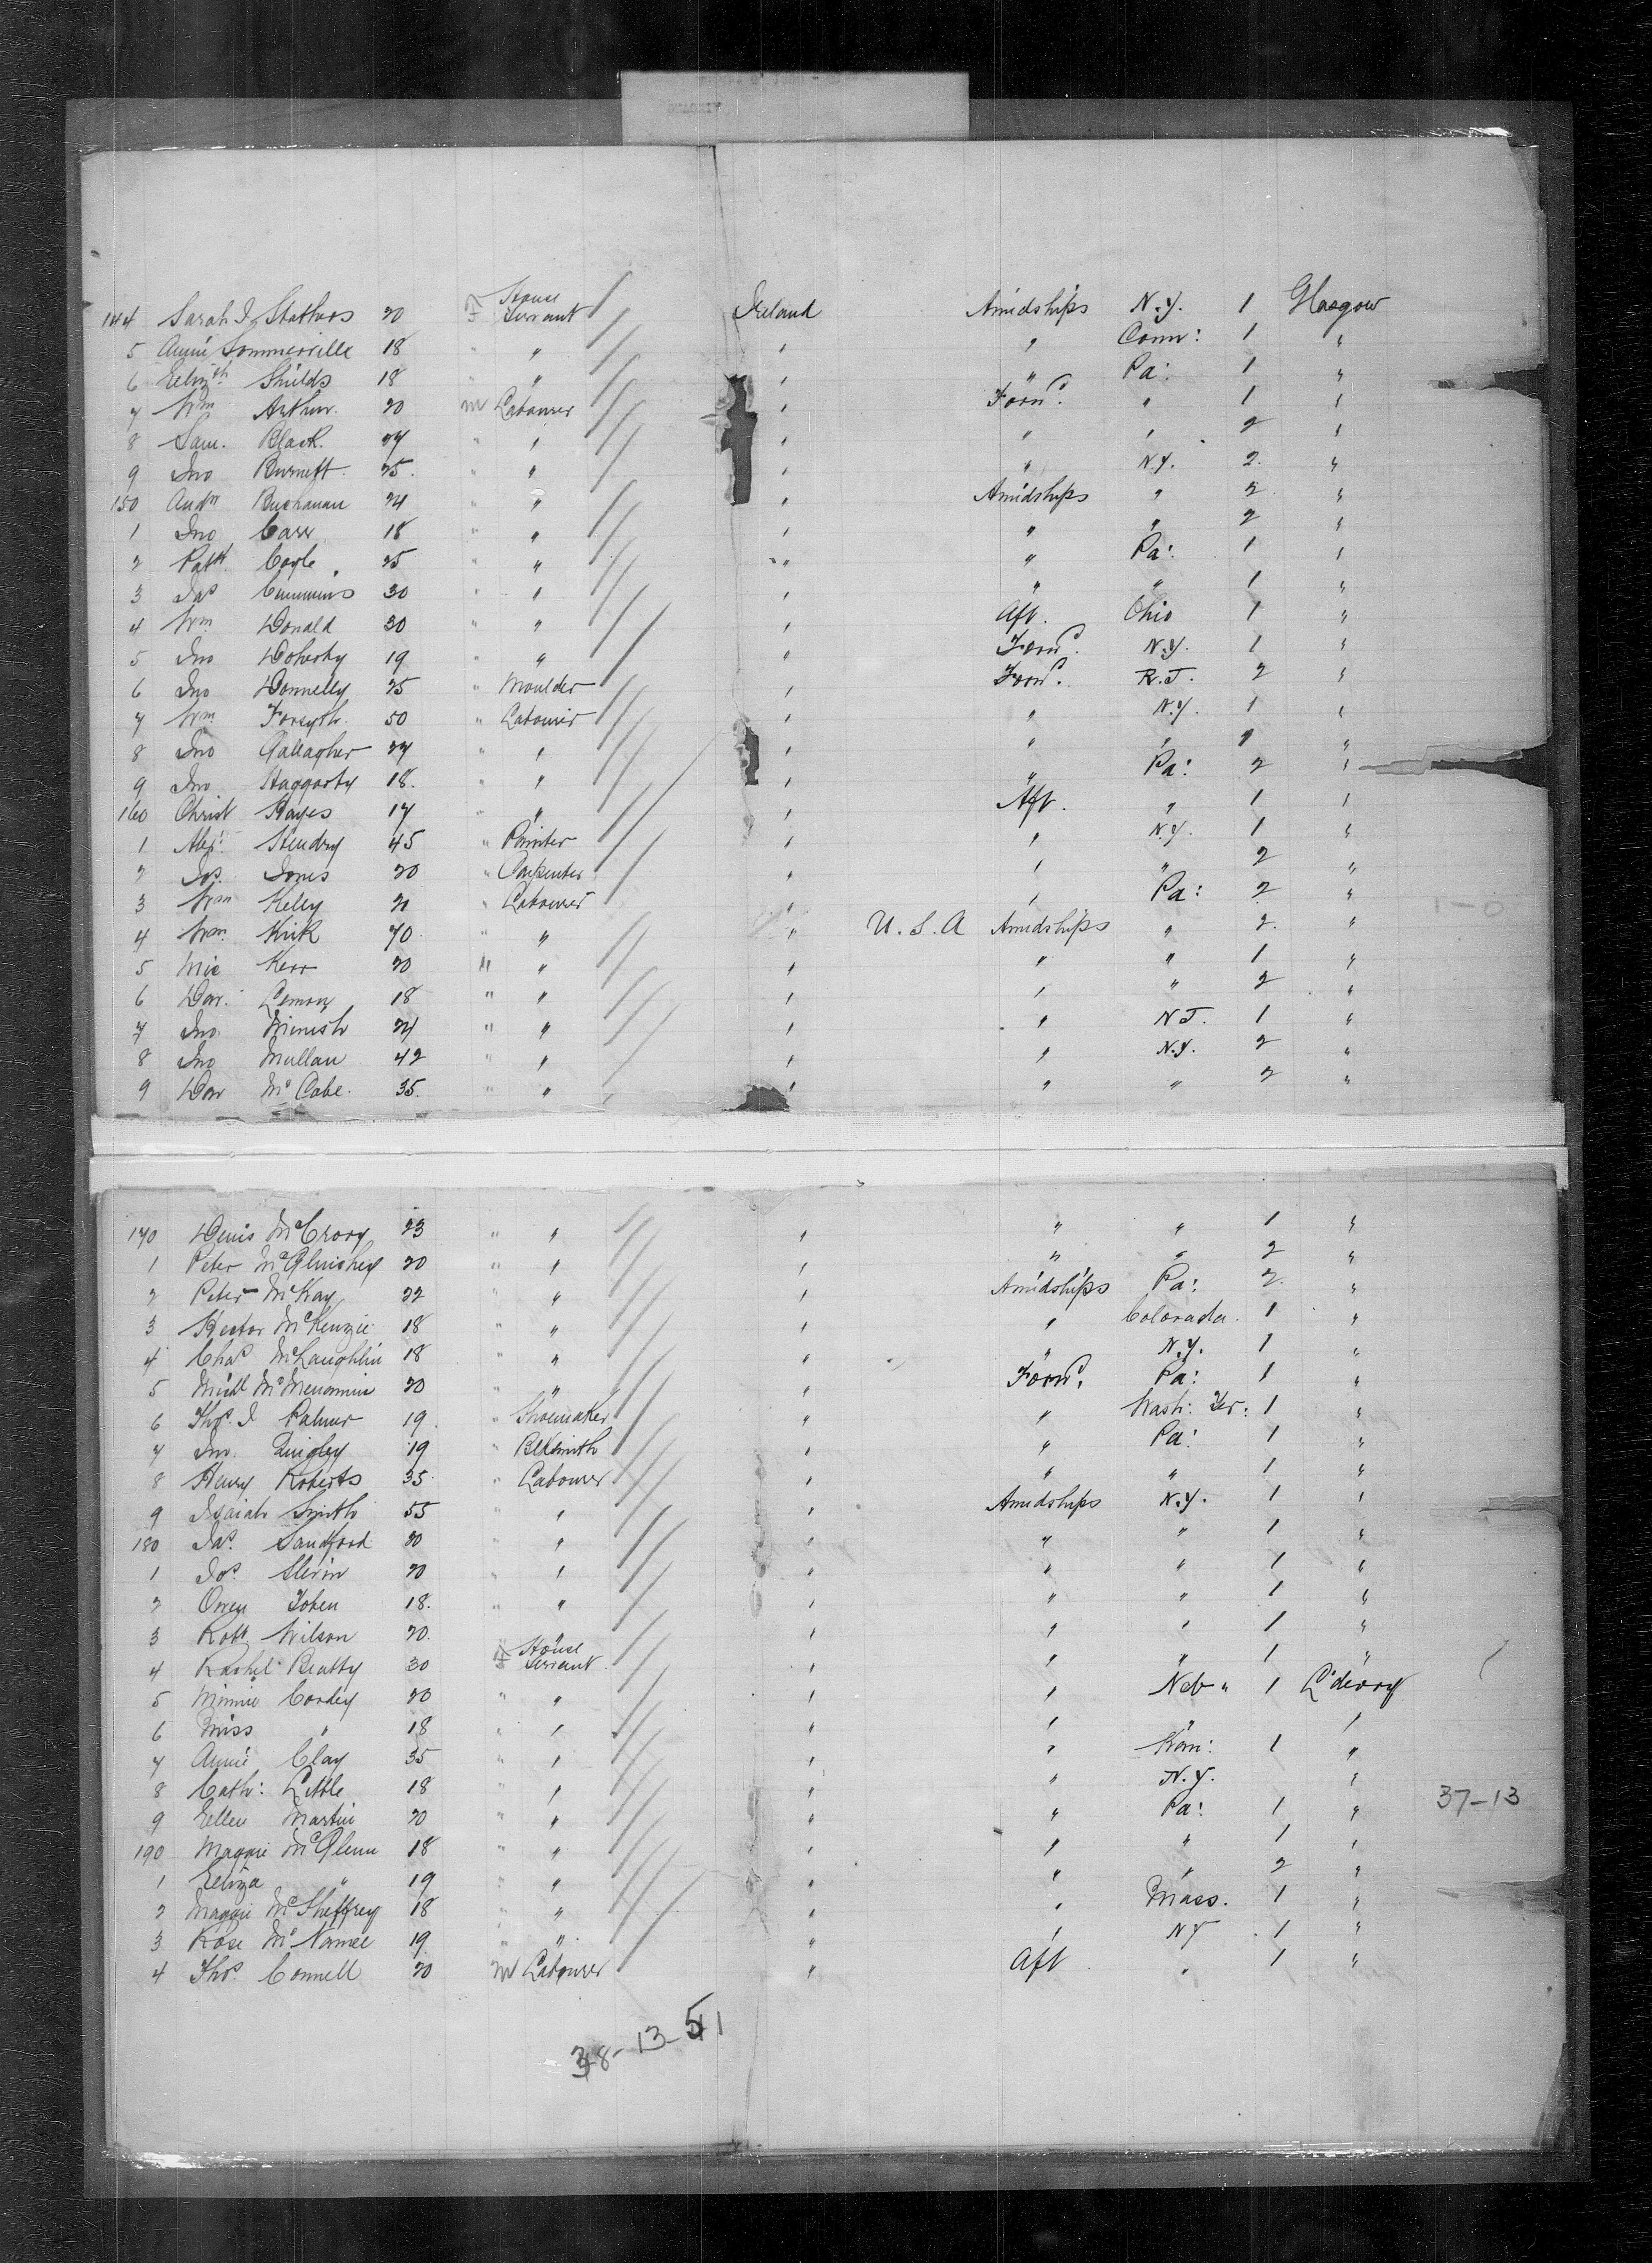 144 Sarah J 20 F House Servant Ireland Amidships N.Y. 1 Glasgow
5 Annie Sommerville 18 " " " " Conn: 1 "
6 Eliz'th Shields 18 " " " " Pa: 1 "
7 Wm Arthur 20 m Labourer " Forwd. " 1 "
8 Sam. Black. 27 " " " " " 2 "
9 Jno Burnett 25. " " " " N.Y. 2. "
150 Andw Buchanan 24 " " " Amidships " 2 "
1 Jno Carr 18 " " " " " 2 "
2 Patk Coyle 25 " " " " Pa: 1 "
3 Jas Cummins 30 " " " " " 1 "
4 Wm Donald 30 " " " Aft. Ohio 1 "
5 Jno Doherty 19 " " " Forwd. N.Y. 1 "
6 Jno Donnelly 25 " Moulder " Forwd. R.I. 2 "
7 Wm Forsyth 50 " Labourer " " N.Y. 1 "
8 Jno Gallagher 27 " " " " " 1 "
9 Jno Haggarty 18. " " " " Pa: 2 "
160 Christ Hayes 17 " " " Aft. " 1 "
1 Alex: Hendry 45 " Painter " " N.Y. 1 "
2 Jos. Jones 20 " Carpenter " " " 2 "
3 Wm Keley " Labourer " " Pa: 2 "
4 Wm Kirk 70 " " " U.S.A Amidships " 2. "
5 Mic Kerr 20 " " " " " 1 "
6 Dan. 18 " " " " " 2 "
7 Jno. 24 " " " " N J. 1 "
8 Jno Mullan 42 " " " " N.Y. 2 "
9 Dan McCabe. 35. " " " " " 2 "
170 Denis McCrory 23 " " " " " 1 "
1 Peter McGlinchey 20 " " " " " 2 "
2 Peter McKay 22 " " " Amidships Pa: 2. "
3 Hector McKenzie 18 " " " " Colorada. 1 "
4 Chas McLaughlin 18 " " " " N.Y. 1 "
5 Michl McMenamin 20 " " " Forwd. Pa: 1 "
6 Thos. J Palmer 19. " Shoemaker " " Wash: Ter: 1 "
7 Jno. Quigley 19 " Blksmith " " Pa: 1 "
8 Henry Roberts 35 " Labourer " " " 1 "
9 Isaiah Smith 55 " " " Amidships N.Y. 1 "
180 Jas. Sandford 30 " " " " " 1 "
1 Jos. Slevin 20 " " " " " 1 "
2 Owen Toben 18. " " " " " 1 "
3 Robt Wilson 20. " " " " " 1 "
4 Rachel Beatty 30 F House Servant " " " 1 "
5 Minnie Cordey 20 " " " " Neb " 1 L'derry
6 Miss " 18 " " " " " "
7 Annie Clay 35 " " " " 1 "
8 Cath: Little 18 " " " " N.Y. "
9 Ellen Martin 20 " " " " Pa: 1 " 37-13
190 Maggie McGlenn 18 " " " " " 1 "
1 Eliza " 19 " " " " " 2 "
2 Maggie McSheffrey 18 " " " " Mass. 1 "
3 Rose McNamee 19 " " " " NY 1 "
4 Thos. Connell 20 m Labourer " Aft " 1 "
38-13-51